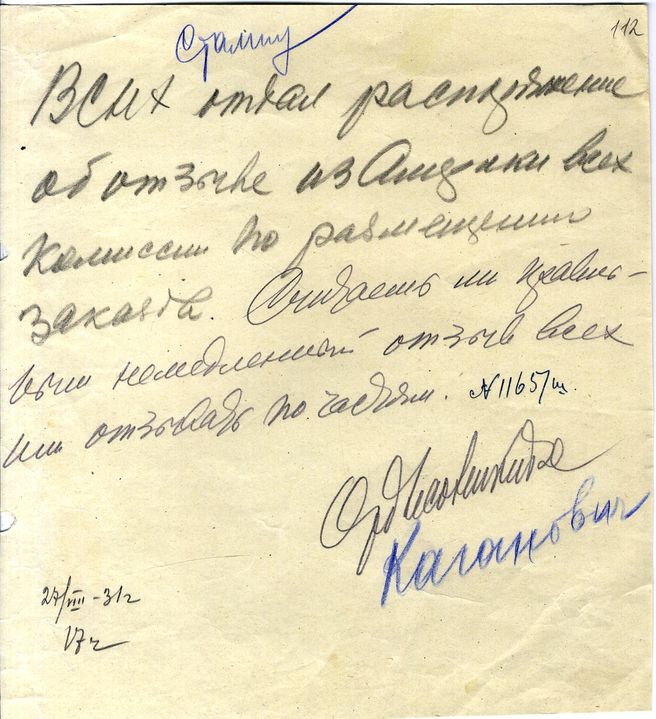 112
Сталину
ВСНХ отдал распоряжение
об отзыве из Америки всех
комиссий по размещению
заказов. Считаешь ли правиль-
ным немедленный отзыв всех
или отзывать по частям. N 1165/ш.
Орджоникидзе
Каганович
27/VIII-31г
17ч